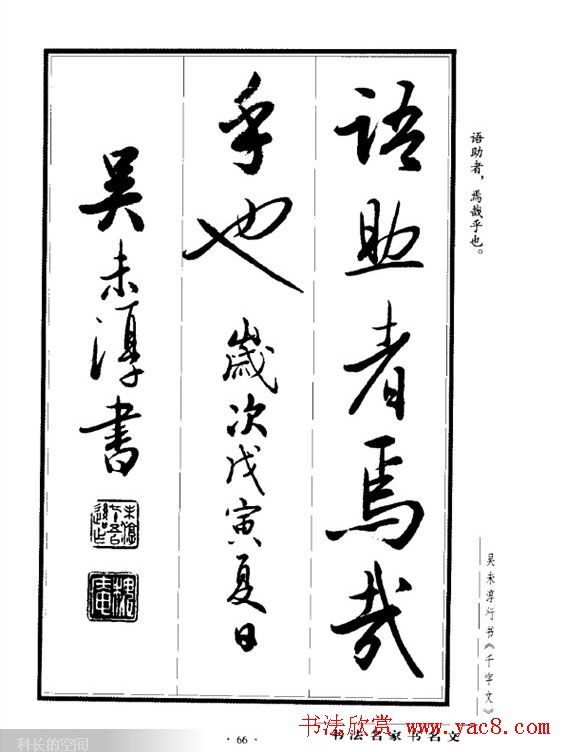 語助者焉哉
乎也 歲次戊寅夏日
吴未淳書
语助者，焉哉乎也。
吴未淳行书《千字文》
·66·
书法名家书名文
书法欣赏 www.yac8.com
科长的空间